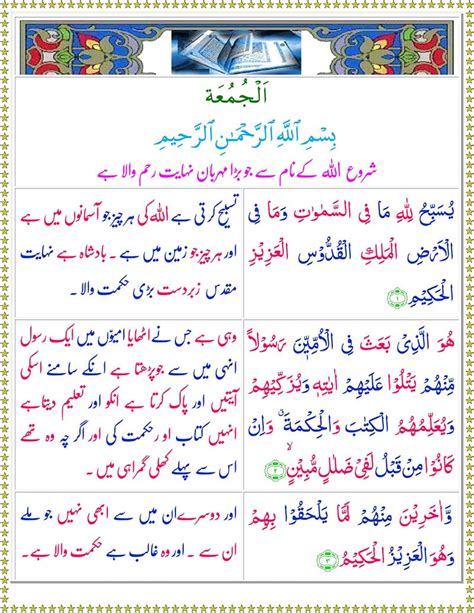 اَلْجُمُعَة
بِسْمِ اللهِ الرَّحْمٰنِ الرَّحِيْمِ
شروع الله کےنام سے جو بڑا مہربان نہایت رحم والا ہے
يُسَبِّحُ لِلّٰهِ مَا فِى السَّمٰوٰتِ وَمَا فِى
الْاَرْضِ الْمَلِكِ الْقُدُّوْسِ الْعَزِيْزِ
الْحَكِيْمِ ۱
تسبیح کرتی ہے الله کی ہر چیز جو آسمانوں میں ہے
اور ہر چیز جو زمین میں ہے ۔ بادشاہ ہے نہایت
مقدس زبردست بڑی حکمت والا ۔
هُوَ الَّذِىْ بَعَثَ فِى الْاُمِّيّٖنَ رَسُوْلًا
مِّنْهُمْ يَتْلُوْا عَلَيْهِمْ اٰيٰتِهٖ وَيُزَكِّيْهِمْ
وَيُعَلِّمُهُمُ الْكِتٰبَ وَالْحِكْمَةَ ۗ وَاِنْ
كَانُوْا مِنْ قَبْلُ لَفِىْ ضَلٰلٍ مُّبِيْنٍ ۙ ۲
وہی ہے جس نےاٹھایا امیوں میں ایک رسول
انہی میں سے جوپڑھتا ہے انکے سامنے اسکی
آیتیں اور پاک کرتا ہے انکو اور تعلیم دیتاہے
انہیں کتاب اور حکمت کی اور اگر چہ وہ تھے
اس سے پہلے کھلی گمراہی میں ۔
وَّاٰخَرِيْنَ مِنْهُمْ لَمَّا يَلْحَقُوْا بِهِمْ
وَهُوَ الْعَزِيْزُ الْحَكِيْمُ ۳
اور دوسرےان میں سے ابھی نہیں جو ملے
ان سے ۔ اور وہ غالب ہے حکمت والا ہے ۔